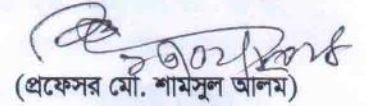 (প্রফেসর মো. শামসুল আলম)